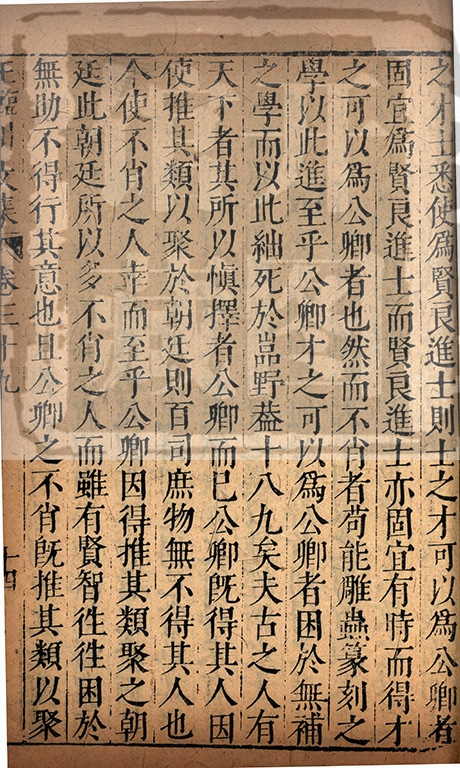 之才士悉使為賢良進士則士之才可以為公卿者
固宜為賢良進士而賢良進士亦固宜有時而得才
之可以為公卿者也然而不肖者苟能雕蟲篆刻之
學以此進至乎公卿才之可以為公卿者困於無補
之學而以此絀死於嵓野蓋十八九矣夫古之人有
天下者其所以慎擇者公卿而已公卿既得其人因
使推其類以聚於朝廷則百司庶物無不得其人也
今使不肖之人幸而至乎公卿因得推其類聚之朝
廷此朝廷所以多不肖之人而雖有賢智徃徃困於
無助不得行其意也且公卿之不肖既推其類以聚
王臨川文集 卷三十九 十四